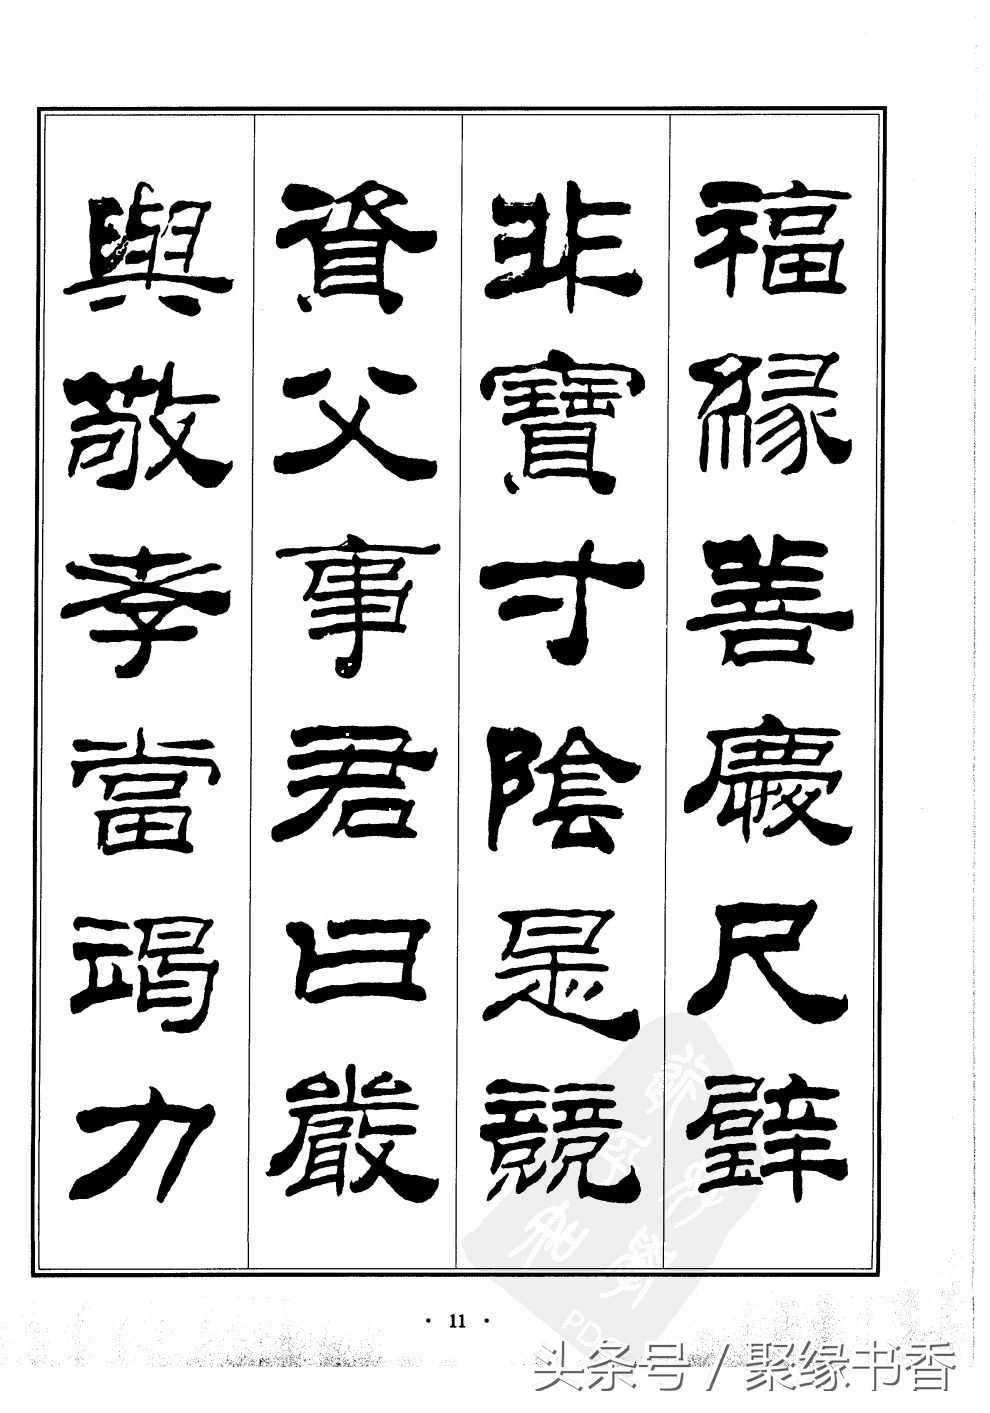 福緣善慶尺璧
非寶寸陰是競
資父事君曰嚴
與敬孝當竭力
· 11 ·
头条号 / 聚缘书香